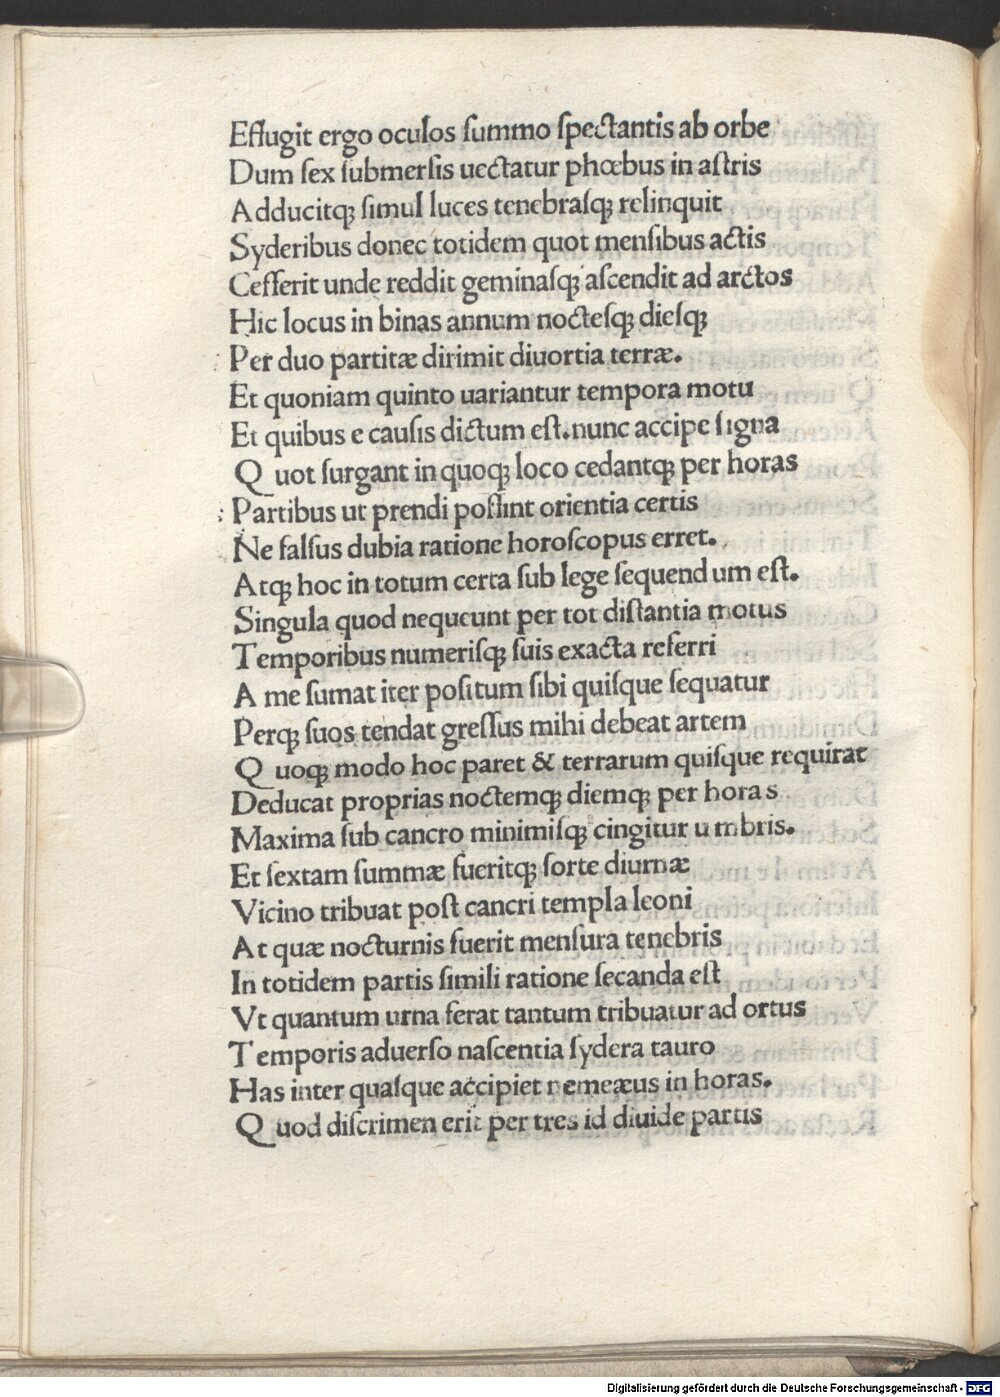 Effugit ergo oculos ſummo ſpectantis ab orbe
Dum ſex ſubmerſis uectatur phœbus in aſtris
Adducitqꝫ ſimul luces tenebraſqꝫ relinquit
Syderibus donec totidem quot menſibus actis
Ceſſerit unde reddit geminaſqꝫ aſcendit ad arctos
Hic locus in binas annum nocteſqꝫ dieſqꝫ
Per duo partitæ dirimit diuortia terræ.
Et quoniam quinto uariantur tempora motu
Et quibus e cauſis dictum eſt.nunc accipe ſigna
Q uot ſurgant in quoqꝫ loco cedantqꝫ per horas
Partibus ut prendi poſſint orientia certis
Ne falſus dubia ratione horoſcopus erret.
Atqꝫ hoc in totum certa ſub lege ſequend um eſt.
Singula quod nequeunt per tot diſtantia motus
Temporibus numeriſqꝫ ſuis exacta referri
A me ſumat iter poſitum ſibi quiſque ſequatur
Perqꝫ ſuos tendat greſſus mihi debeat artem
Q uoqꝫ modo hoc paret & terrarum quiſque requirat
Deducat proprias noctemqꝫ diemqꝫ per horas
Maxima ſub cancro minimiſqꝫ cingitur u mbris.
Et ſextam ſummæ fueritqꝫ ſorte diurnæ
Vicino tribuat poſt cancri templa leoni
At quæ nocturnis fuerit menſura tenebris
In totidem partis ſimili ratione ſecanda eſt
Vt quantum urna ferat tantum tribuatur ad ortus
Temporis aduerſo naſcentia ſydera tauro
Has inter quaſque accipiet nemeæus in horas.
Q uod diſcrimen erit per tres id diuide partus
Digitalisierung gefördert durch die Deutsche Forschungsgemeinschaft - DFG